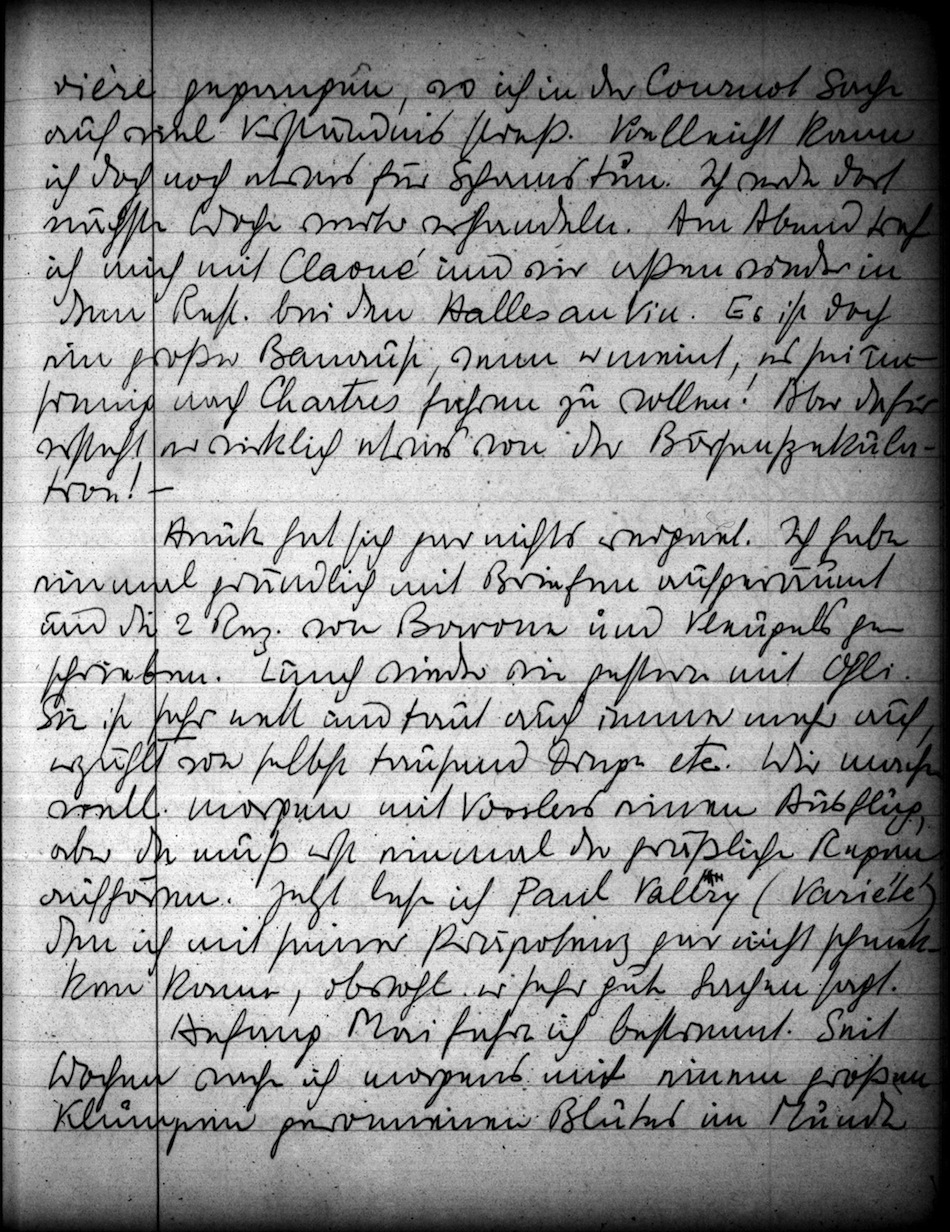 vière gegangen, wo ich in der Cournot Sache
auf viel Verständnis stieß. Vielleicht kann
ich doch noch etwas für Schams tun. Ich werde dort
nächste Woche weiter verhandeln. Am Abend traf
ich mich mit Claoué und wir aßen wieder in
dem Rest. bei den Halles au Vin. Es ist doch
ein großer, wenn er meint, er sei
nach Chartres fahren zu wollen! Aber dafür
versteht er wirklich etwas von der Börsenspekula-
tion! –
Heute hat sich gar nichts ereignet. Ich habe
einmal gründlich mit Briefen aufgeräumt
und die 2 Rez. von und ge-
schrieben. Lunch wieder wie gestern mit Ogli.
Sie ist sehr nett und taut auch immer mehr auf,
erzählt von selbst tausend Dinge etc. Wir machen
viell. morgen mit Vosslers einen Ausflug,
aber da muß erst einmal der gräßliche Regen
aufhören. Jetzt lese ich Paul Valéry (Variété)
den ich mit seiner Präpotenz gar nicht schmek-
ken kann, obwohl er sehr gute Sachen sagt.
Anfang Mai fahre ich bestimmt. Seit
Wochen wache ich morgens mit einem großen
Klumpen geronnenen Blutes im Munde